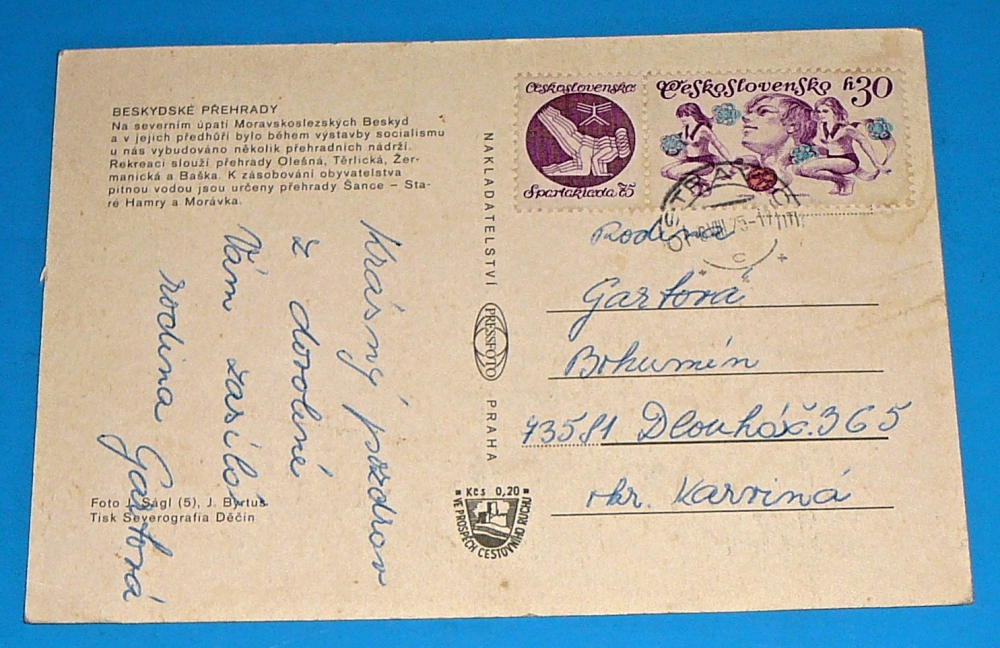 BESKYDSKÉ PŘEHRADY
Na severním úpatí Moravskoslezských Beskyd
a v jejich předhůří bylo během výstavby socialismu
u nás vybudováno několik přehradních nádrží.
Rekreaci slouží přehrady Olešná, Těrlická, Žer-
manická a Baška. K zásobování obyvatelstva
pitnou vodou jsou určeny přehrady Šance – Sta-
ré Hamry a Morávka.
Krásný pozdrav
z dovolené
Vám zasílá
rodina Gartová
Foto J. Ságl (5), J. Byrtus
Tisk Severografia Děčín
NAKLADATELSTVÍ
PRESSFOTO
PRAHA
Kčs 0,20
VE PROSPĚCH CESTOVNÍHO RUCHU
Československo
Spartakiada 75
Československo h30
Rodina
Gartová
Bohumín
73581 Dlouhá č. 365
okr. Karviná